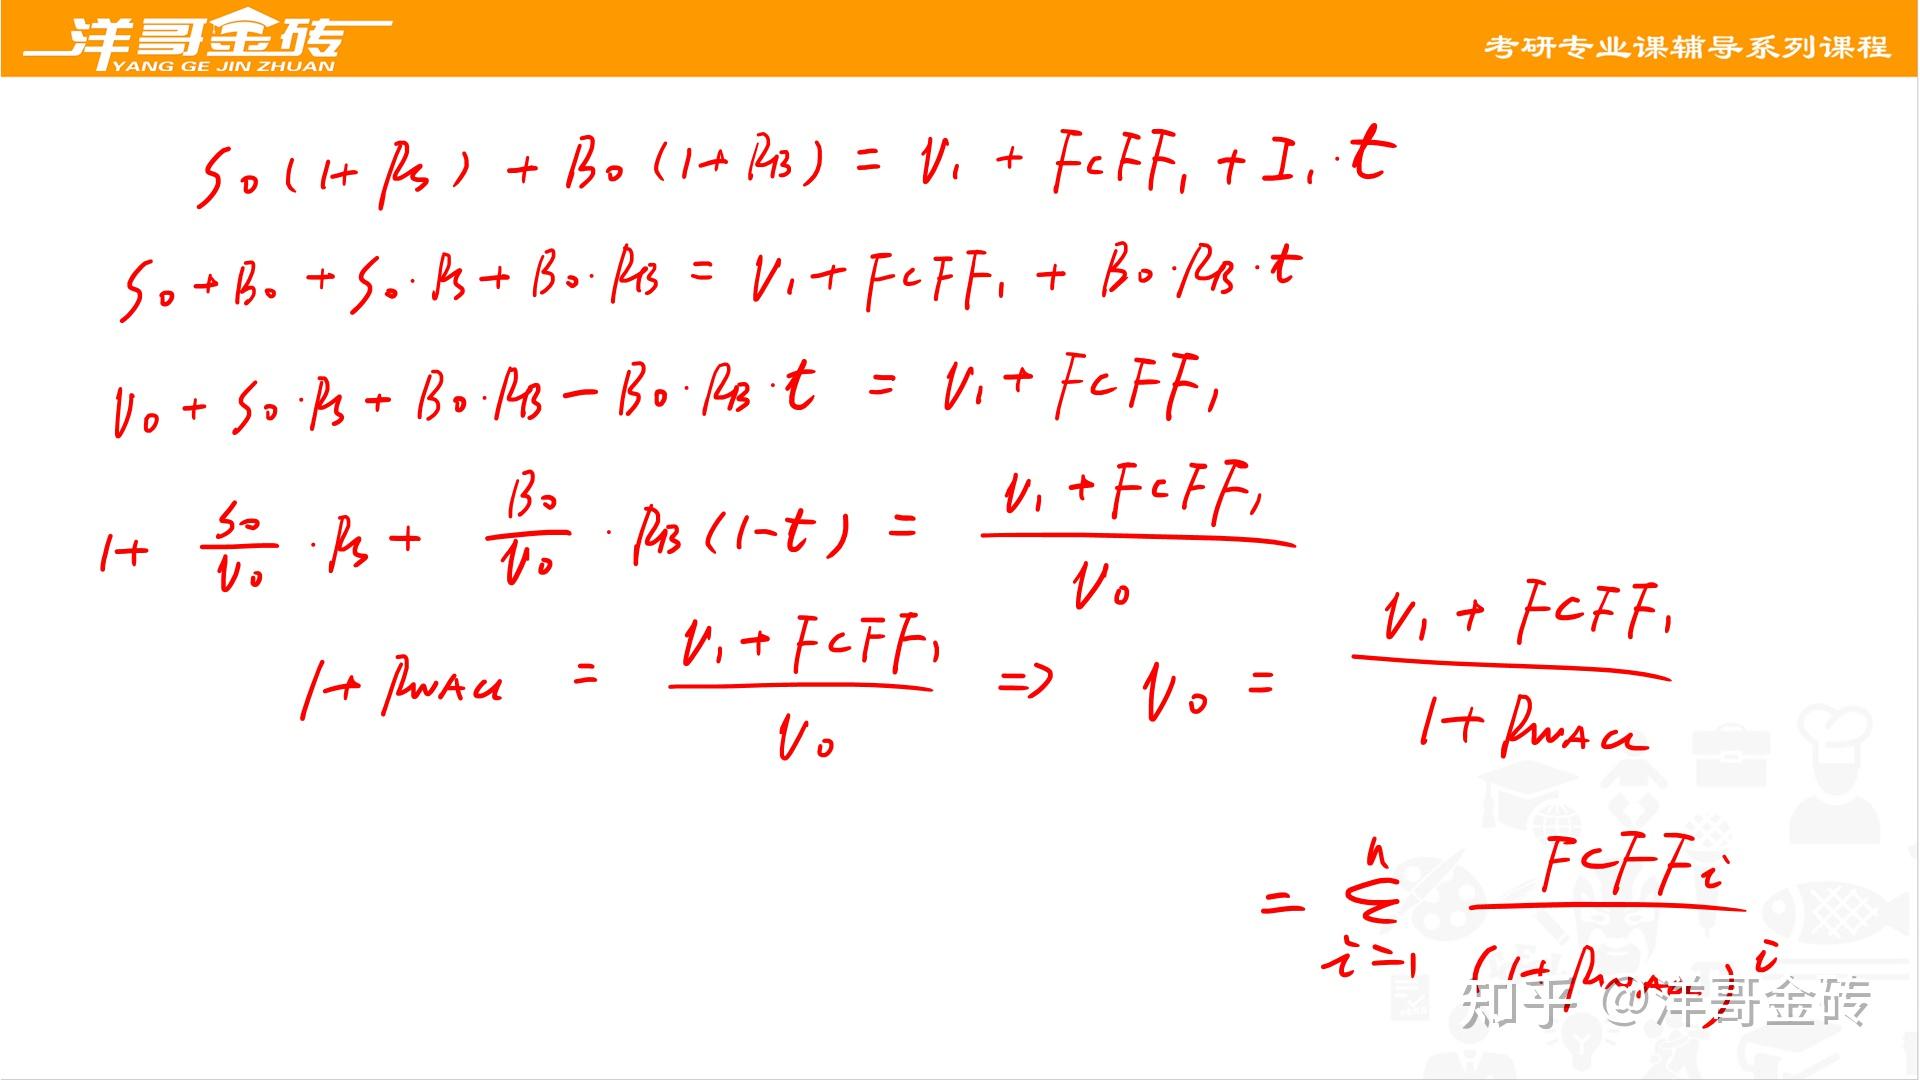 洋哥金砖
YANG GE JIN ZHUAN
考研专业课辅导系列课程
S₀(1+R_S)+B₀(1+R_B)=V₁+FCFF₁+I₁·t
S₀+B₀+S₀·R_S+B₀·R_B=V₁+FCFF₁+B₀·R_B·t
V₀+S₀·R_S+B₀·R_B-B₀·R_B·t=V₁+FCFF₁
1+S₀/V₀·R_S+B₀/V₀·R_B(1-t)=(V₁+FCFF₁)/V₀
1+R_WACC=(V₁+FCFF₁)/V₀ ⇒ V₀=(V₁+FCFF₁)/(1+R_WACC)
=∑_{i=1}^{n} FCFF_i/(1+R_WACC)^i
知乎 @洋哥金砖